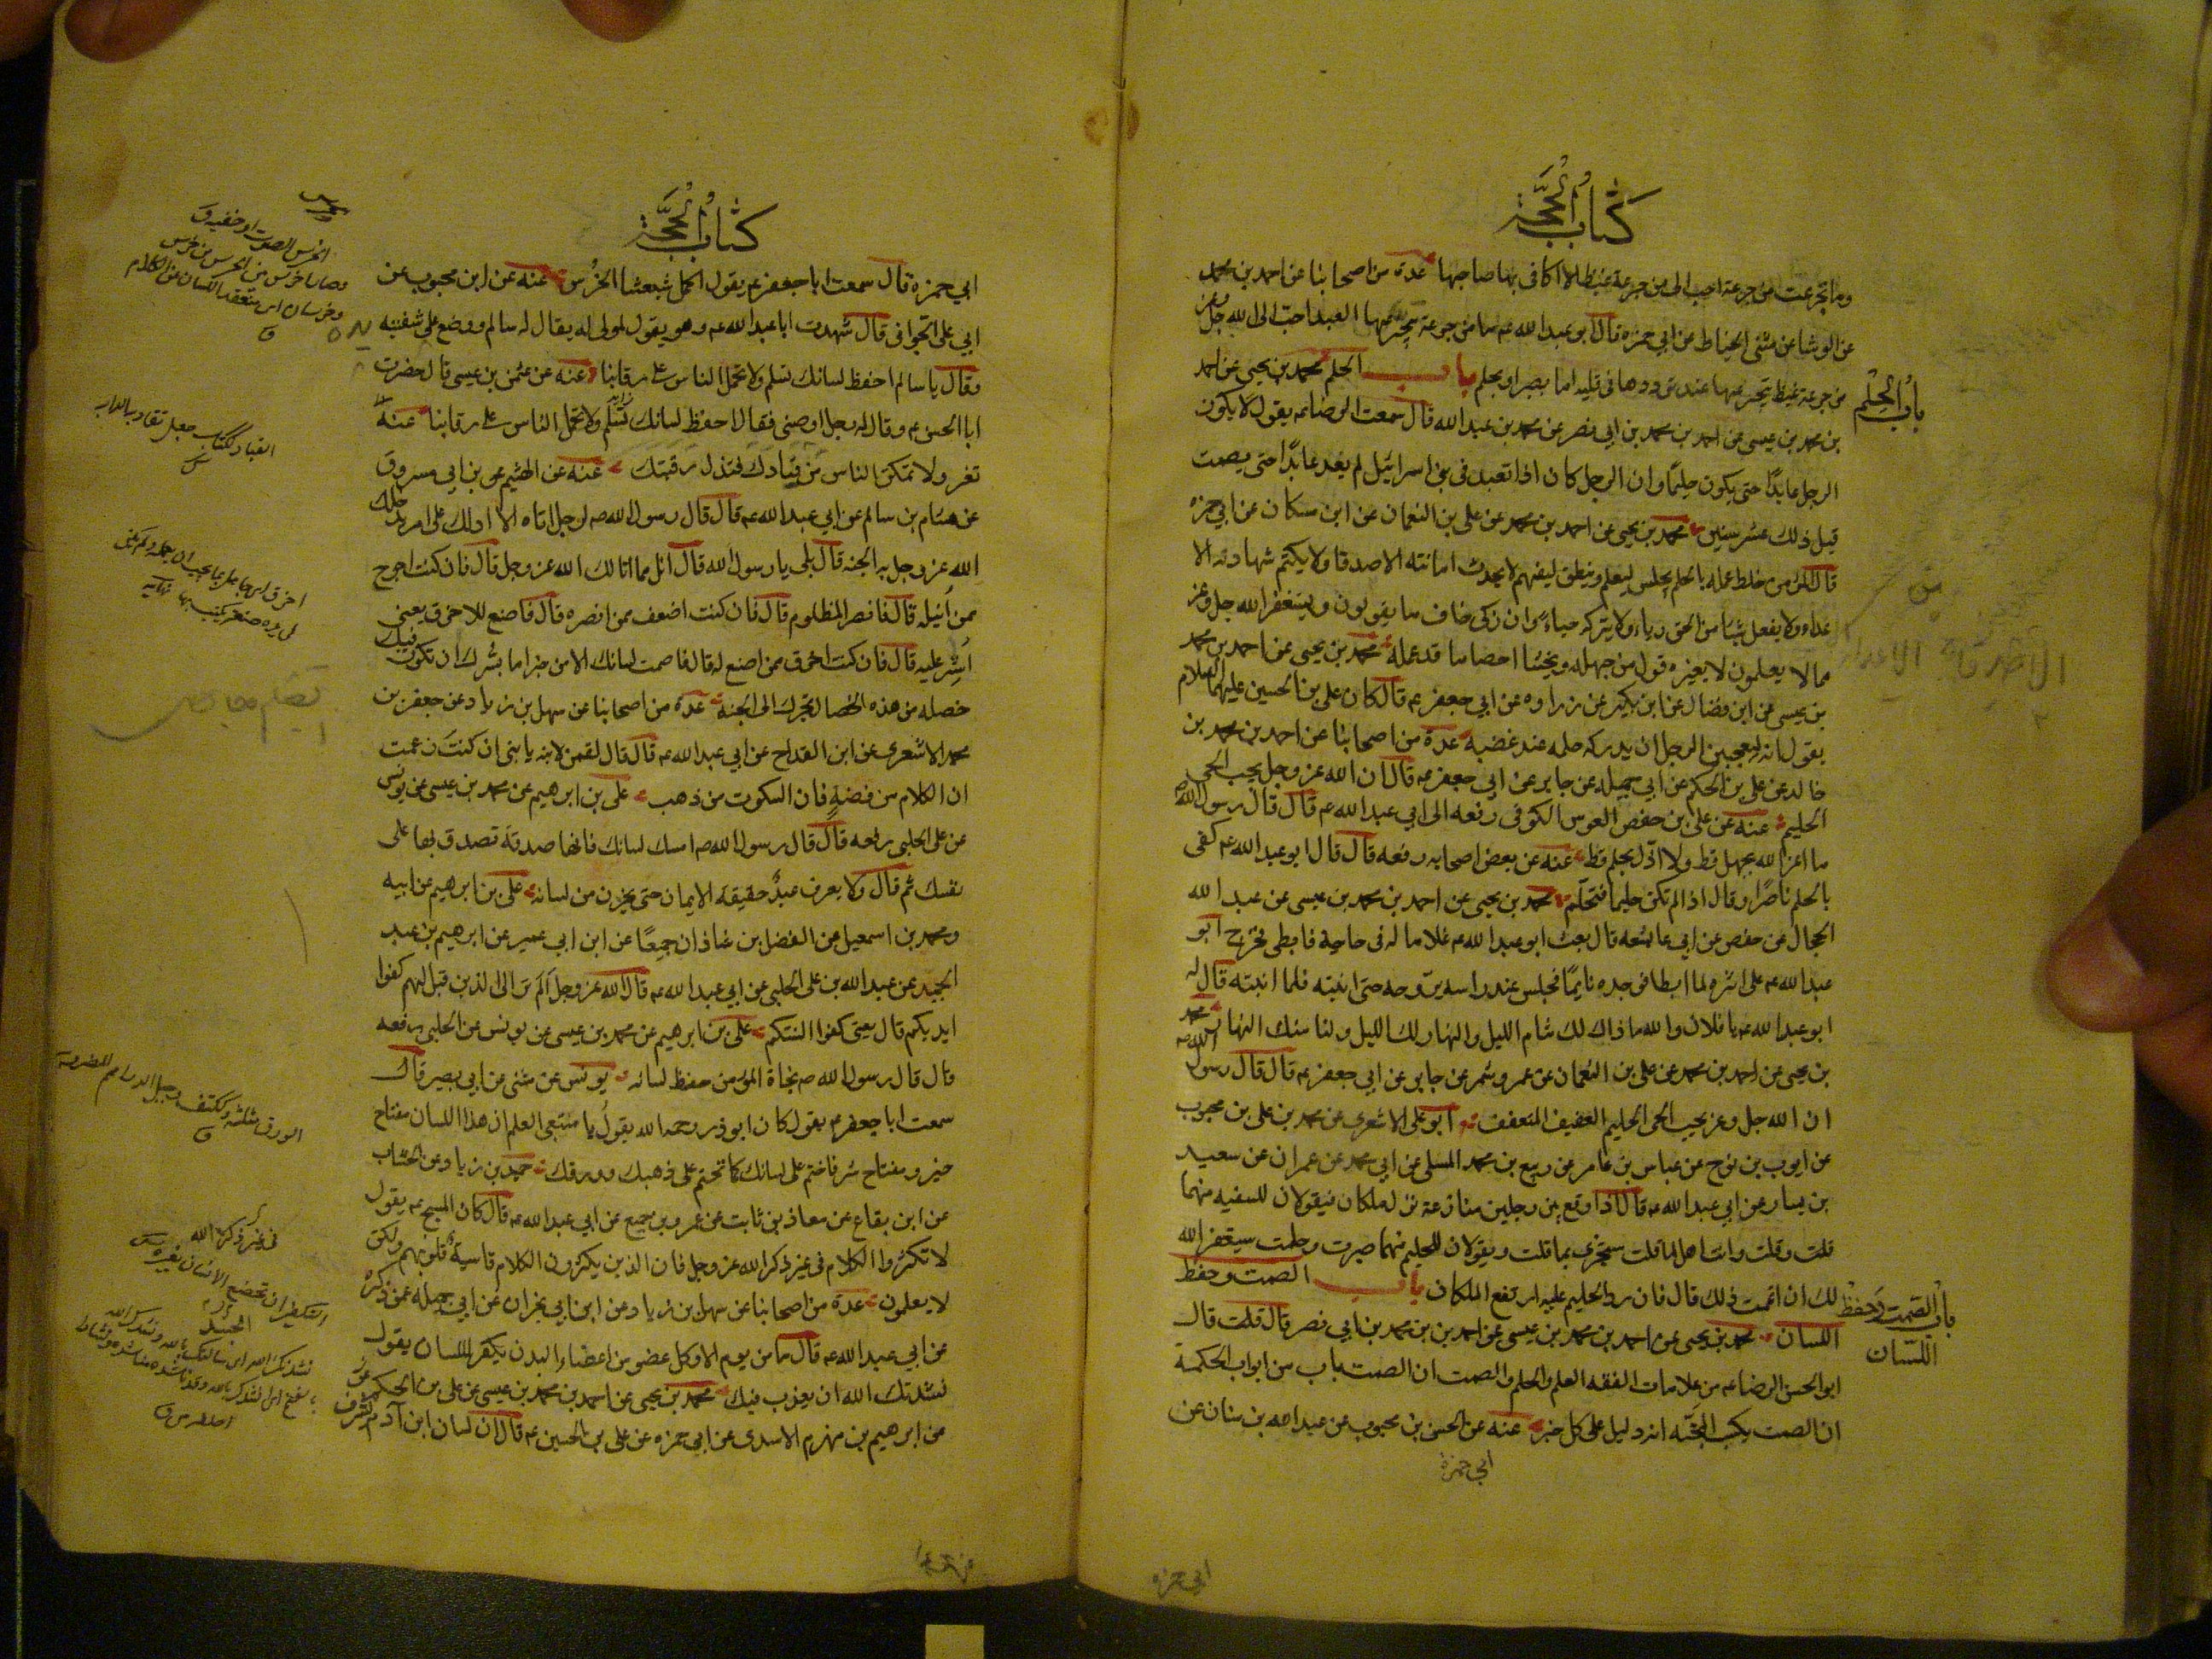 كتاب الحجة
وما تجرعت من جرعة احب الى من جرعة غيظ لا اكافى بها صاحبها عدة من اصحابنا عن احمد بن محمد
عن الوشا عن مثنى الحناط عن ابي حمزه قال قال ابو عبد الله عم ما من جرعة يتجرعها العبد احب الى الله جل وعز
من جرعة غيظ يتجرعها عند ترددها فى قلبه اما بصبر او بحلم باب الحلم محمد بن يحيى عن احمد
باب الحلم
بن محمد بن عيسى عن احمد بن محمد بن ابي نصر عن محمد بن عبد الله قال سمعت الرضا عم يقول لا يكون
الرجل عابدًا حتى يكون حليمًا وان الرجل كان اذا تعبد فى بنى اسرائيل لم يعد عابدًا حتى يصمت
قبل ذلك عشر سنين محمد بن يحيى عن احمد بن محمد عن على بن النعمان عن ابن مسكان عن ابي حمزه
قال المؤمن خلط عمله بالحلم يجلس ليعلم وينطق ليفهم لا يحدث امانته الاصدقا ولا يكتم شهادته الا
عداء ولا يفعل شيئا من الحق رياء ولا يتركه حياءً ان زكى خاف ما يقولون ويستغفر الله جل وعز
مما لا يعلمون لا يغيره قول من جهله ويخشا احصا ما قد عمله محمد بن يحيى عن احمد بن محمد
بن عيسى عن ابن فضال عن ابن بكير عن زراره عن ابي جعفر عم قال كان على بن الحسين عليهما السلام
يقول انه ليعجبنى الرجل ان يدركه حلمه عند غضبه عدة من اصحابنا عن احمد بن محمد بن
خالد عن على بن الحكم عن ابي جميله عن جابر عن ابي جعفر عم قال ان الله عز وجل يحب الحيى
الحليم عنه عن على بن حفص العوسى الكوفى رفعه الى ابي عبد الله عم قال قال رسول الله
ما اعز الله بجهل قط ولا اذل بحلم قط عنه عن بعض اصحابه رفعه قال قال ابو عبد الله عم كفى
بالحلم ناصرًا وقال اذا لم تكن حليما فتحلّم محمد بن يحيى عن احمد بن محمد بن عيسى عن عبد الله
الحجال عن حفص عن ابي عايشه قال بعث ابو عبد الله عم غلاما له فى حاجة فابطى فخرج ابو
عبد الله عم على اثره لما ابطا فوجده نايمًا فجلس عند راسه يروحه حتى انتبه فلما انتبه قال له
ابو عبد الله عم يا فلان والله ما ذاك لك تنام الليل والنهار لك الليل ولنا منك النهار محمد
بن يحيى عن احمد بن محمد عن على بن النعمان عن عمرو بن شمر عن جابر عن ابي جعفر عم قال قال رسول الله ص
ان الله جل وعز يحب الحيى الحليم العفيف المتعفف ابو على الاشعرى عن محمد بن على بن محبوب
عن ايوب بن نوح عن عباس بن عامر عن ربيع بن محمد المسلى عن ابي محمد عن عمران عن سعيد
بن يسار عن ابي عبد الله عم قال اذا وقع بين رجلين منازعة نزل ملكان فيقولان للسفيه منهما
قلت وقلت وانت اهل لما قلت ستجزى بما قلت ويقولان للحليم منهما صبرت وحلمت سيغفر الله
لك ان اتممت ذلك قال فان رد الحليم عليه ارتفع الملكان باب الصمت وحفظ
باب الصمت وحفظ
اللسان
اللسان محمد بن يحيى عن احمد بن محمد بن عيسى عن احمد بن محمد بن ابي نصر قال قلت قال
ابو الحسن الرضا عم من علامات الفقه العلم والحلم والصمت ان الصمت باب من ابواب الحكمة
ان الصمت يكسب المحبّه انه دليل على كل خير عنه عن الحسن بن محبوب عن عبد الله بن سنان عن
ابي حمزة
ابي حمزه
كتاب الحجة
ابي حمزه قال سمعت ابا جعفر عم يقول انما شيعتنا الخُرُس عنه عن ابن محبوب عن
ابي على الجوانى قال شهدت ابا عبد الله عم وهو يقول لمولى له يقال له سالم ووضع على شفتيه
وقال يا سالم احفظ لسانك تسلم ولا تحمل الناس على رقابنا عنه عن عثمن بن عيسى قال حضرت
ابا الحسن عم وقال له رجل اوصنى فقال احفظ لسانك
تعز ولا تمكن الناس من قيادك فتذل رقبتك عنه عن الهيثم بن ابي مسروق
عن هشام بن سالم عن ابي عبد الله عم قال قال رسول الله ص لرجل اتاه الا ادلك على امر يدخلك
الله عز وجل به الجنه قال بلى يا رسول الله قال انل مما انالك الله عز وجل قال فان كنت احوج
ممن اُنيله قال فانصر المظلوم قال فان كنت اضعف ممن انصره قال فاصنع للاخرق يعنى
اَشِر عليه قال فان كنت اخرق ممن اصنع له قال فاصمت لسانك الا من خير اما يسرك ان تكون فيك
خصله من هذه الخصال تجرك الى الجنه عدة من اصحابنا عن سهل بن زياد عن جعفر بن
محمد الاشعرى عن ابن القداح عن ابي عبد الله عم قال قال لقمن لابنه يا بنى ان كنتَ زعمت
ان الكلام من فضةٍ فان السكوت من ذهب على بن ابرهيم عن محمد بن عيسى عن يونس
عن على الحلبى رفعه قال قال رسول الله ص امسك لسانك فانها صدقة تصدق بها على
نفسك ثم قال ولا يعرف عبدٌ حقيقة الايمان حتى يخزن من لسانه على بن ابرهيم عن ابيه
ومحمد بن اسمعيل عن الفضل بن شاذان جميعًا عن ابن ابي عمير عن ابرهيم بن عبد
الحميد عن عبيد الله بن على الحلبى عن ابي عبد الله عم قال الله عز وجل اَلَم تَرَ الى الذين قيل لهم كفوا
ايديكم قال يعنى كفوا السنتكم على بن ابرهيم عن محمد بن عيسى عن يونس عن الحلبى رفعه
قال قال رسول الله ص نجاة المؤمن حفظ لسانه يونس عن مثنى عن ابي بصير قال
سمعت ابا جعفر عم يقول كان ابو ذر رحمه الله يقول يا مبتغى العلم ان هذا اللسان مفتاح
خير ومفتاح شر فاختم على لسانك كما تختم على ذهبك وورقك حميد بن زياد عن الخشاب
عن ابن بقاع عن معاذ بن ثابت عن عمرو بن جميع عن ابي عبد الله عم قال كان المسيح عم يقول
لا تكثروا الكلام فى غير ذكر الله عز وجل فان الذين يكثرون الكلام قاسيةٌ قلوبهم ولكن
لا يعلمون عدة من اصحابنا عن سهل بن زياد عن ابن ابي نجران عن ابي جميله عمن ذكره
عن ابي عبد الله عم قال ما من يوم الا وكل عضو من اعضاء البدن يكفر اللسان يقول
نشدتك الله ان يعذب فيك محمد بن يحيى عن احمد بن محمد بن عيسى عن على بن الحكم عن
ابرهيم بن مهزم الاسدى عن ابي حمزه عن على بن الحسين عم قال ان لسان ابن آدم يشرف
القياد ككتاب حبل تقاد به الدابه
الورق مثلثه وككتف وجبل الدراهم المضروبة